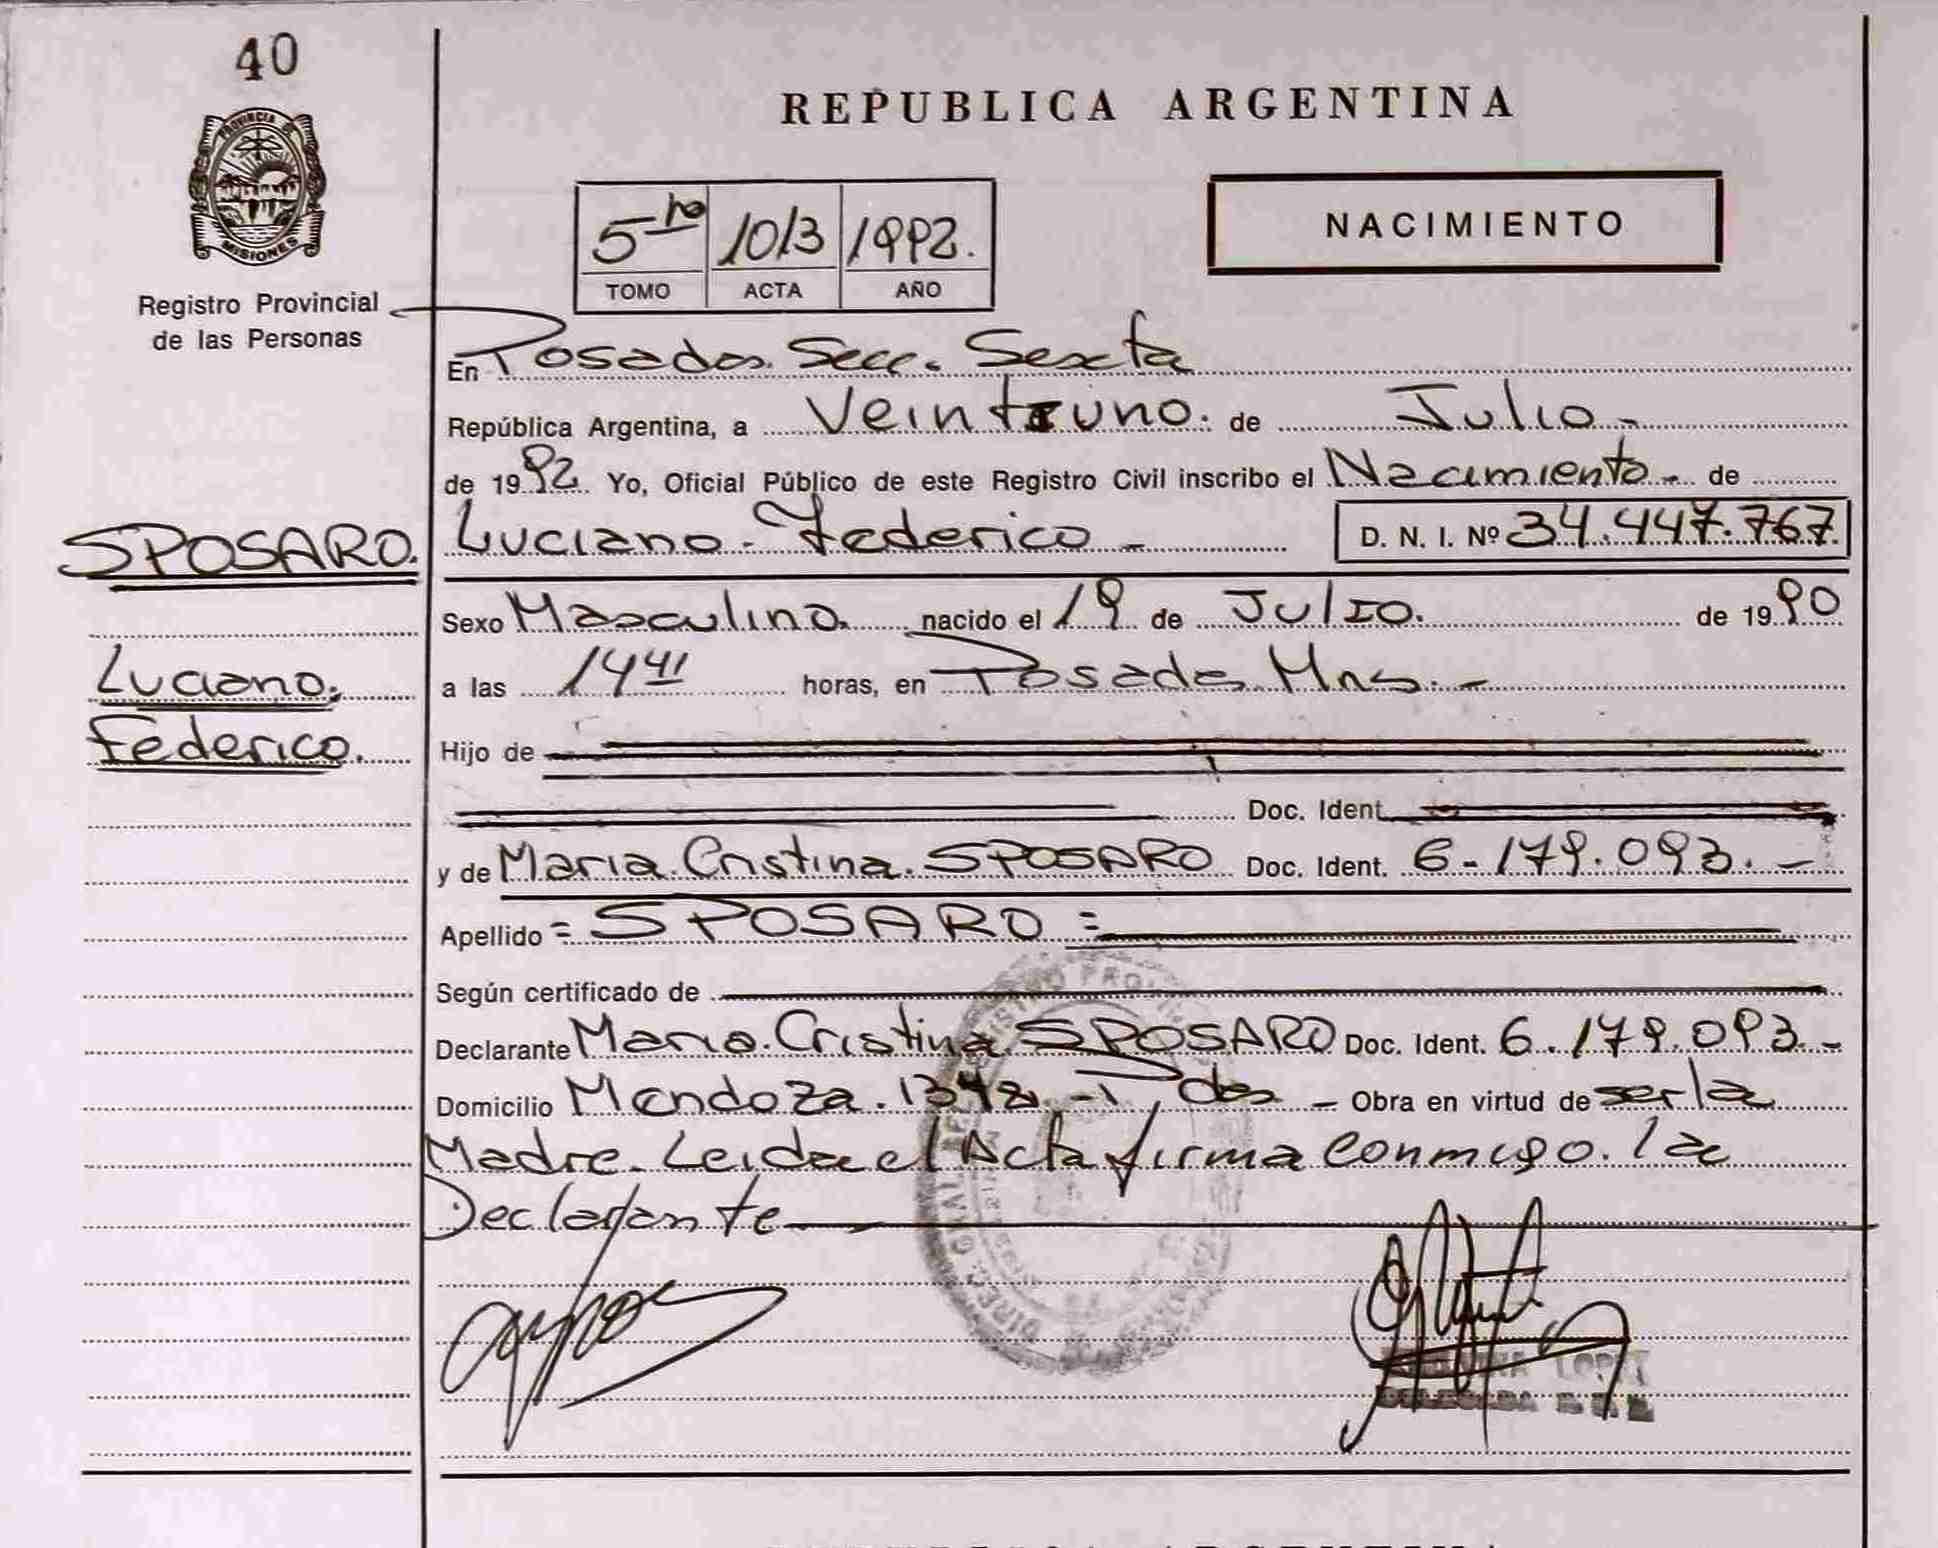 40
PROVINCIA DE
MISIONES
Registro Provincial
de las Personas
REPUBLICA ARGENTINA
NACIMIENTO
5to 1013 1992.
TOMO ACTA AÑO
En Posadas. Secc. Sexta
República Argentina, a Veintiuno. de Julio.-
de 1992. Yo, Oficial Público de este Registro Civil inscribo el Nacimiento.- de
SPOSARO. Luciano-Federico- D. N. I. Nº 34.447.767
Sexo Masculino. nacido el 19 de Julio. de 1990
Luciano. a las 14 41 horas, en Posadas. Mns.-
Federico. Hijo de
Doc. Ident.
y de Maria.Cristina.SPOSARO Doc. Ident. 6-179.093.-
Apellido = SPOSARO =
Según certificado de
Declarante Maria.Cristina SPOSARO Doc. Ident. 6.179.093.-
Domicilio Mendoza. -Pdas - Obra en virtud de ser la
Madre. Leida el Acta firma conmigo. la
Declarante